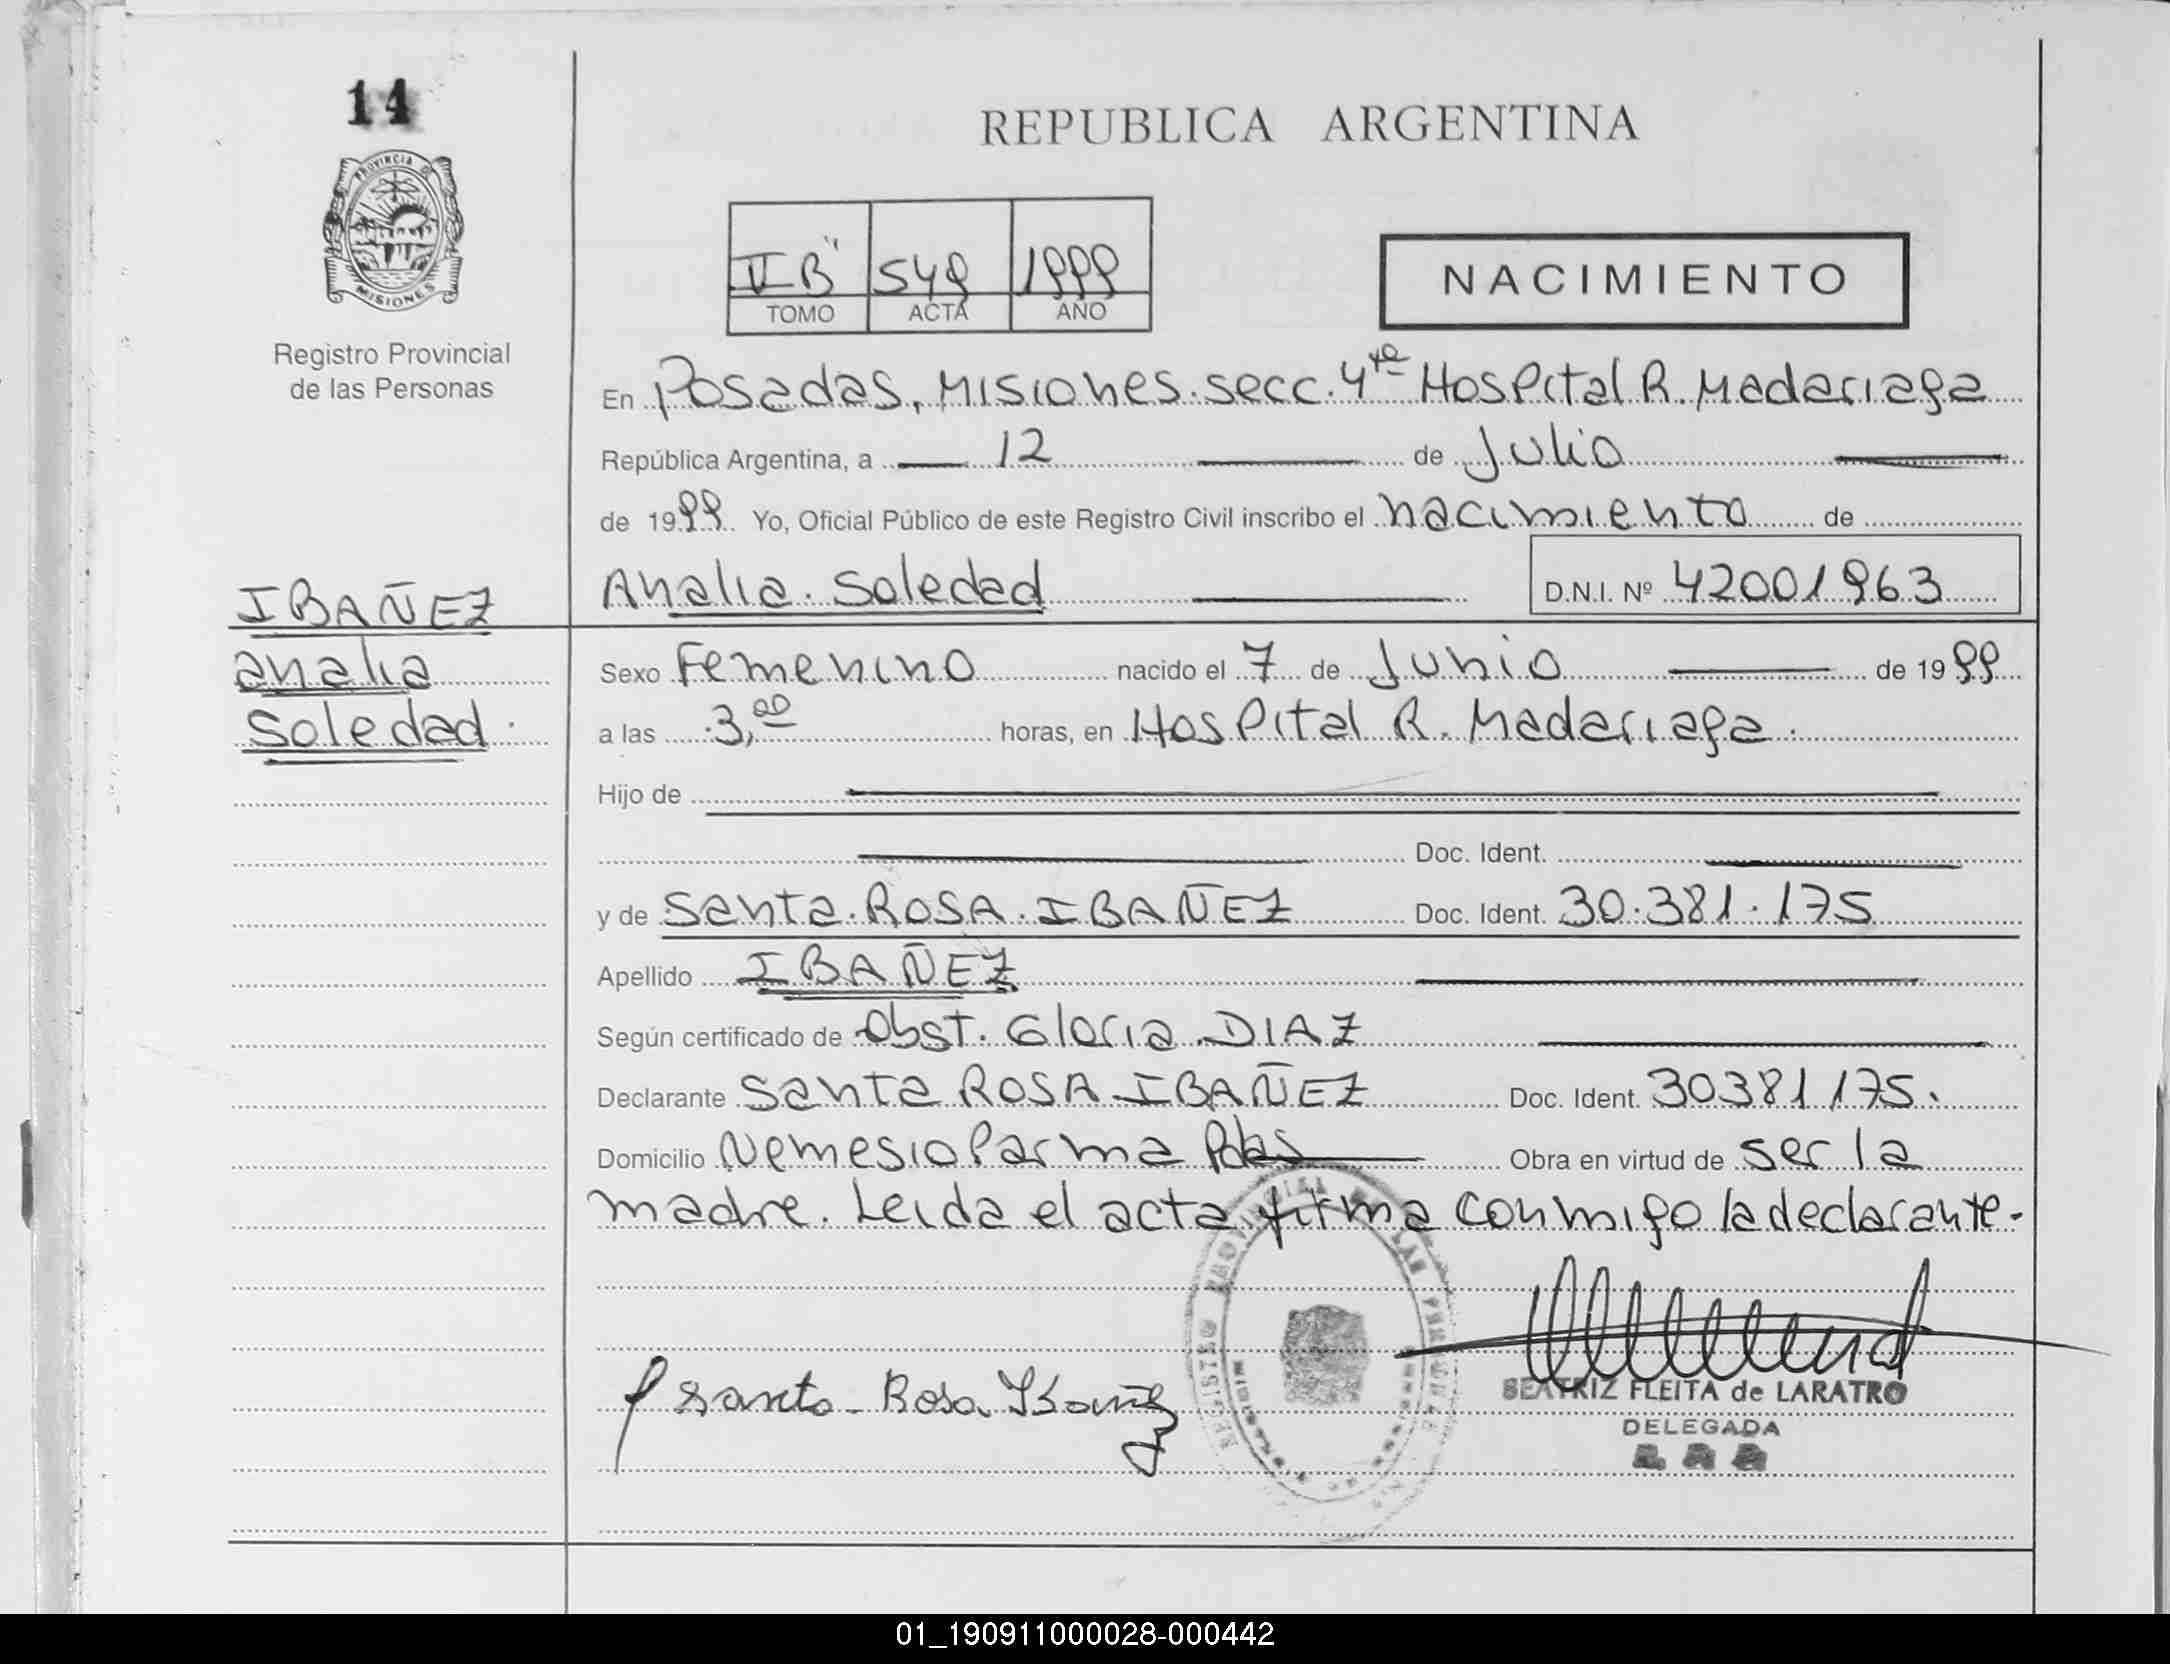 14
PROVINCIA DE
MISIONES
Registro Provincial
de las Personas
IBAÑEZ
analia
Soledad.
REPUBLICA ARGENTINA
II B" 549 1999
TOMO ACTA AÑO
NACIMIENTO
En Posadas, Misiones. secc. 4ta Hospital R. Madariaga
República Argentina, a 12 de Julio
de 1999 Yo, Oficial Público de este Registro Civil inscribo el nacimiento de
Analia. Soledad D.N.I. Nº 42001963
Sexo Femenino nacido el 7 de Junio de 1999
a las 3,00 horas, en Hospital R. Madariaga.
Hijo de
Doc. Ident.
y de Santa. ROSA. IBAÑEZ Doc. Ident. 30.381.175
Apellido IBAÑEZ
Según certificado de Obst. Gloria DIAZ
Declarante Santa ROSA IBAÑEZ Doc. Ident. 30381175.
Domicilio Nemesio Parma Pdas Obra en virtud de ser la
madre. Leida el acta firma conmigo la declarante-
REGISTRO PROVINCIAL DE LAS PERSONAS
Santa-Rosa Ibañez
BEATRIZ FLEITA de LARATRO
DELEGADA
01_190911000028-000442